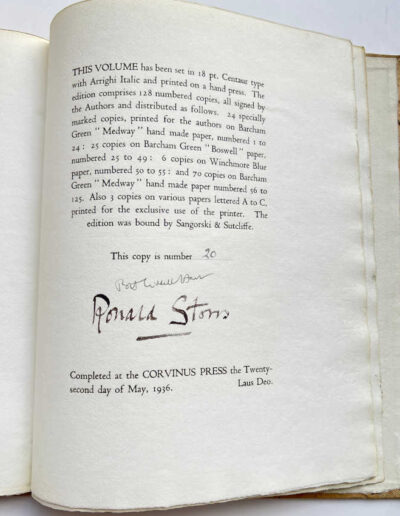 THIS VOLUME has been set in 18 pt. Centaur type
with Arrighi Italic and printed on a hand press. The
edition comprises 128 numbered copies, all signed by
the Authors and distributed as follows. 24 specially
marked copies, printed for the authors on Barcham
Green "Medway" hand made paper, numbered 1 to
24: 25 copies on Barcham Green "Boswell" paper,
numbered 25 to 49: 6 copies on Winchmore Blue
paper, numbered 50 to 55: and 70 copies on Barcham
Green "Medway" hand made paper numbered 56 to
125. Also 3 copies on various papers lettered A to C,
printed for the exclusive use of the printer. The
edition was bound by Sangorski & Sutcliffe.
This copy is number 20
Ronald Storrs
Completed at the CORVINUS PRESS the Twenty-
second day of May, 1936. Laus Deo.